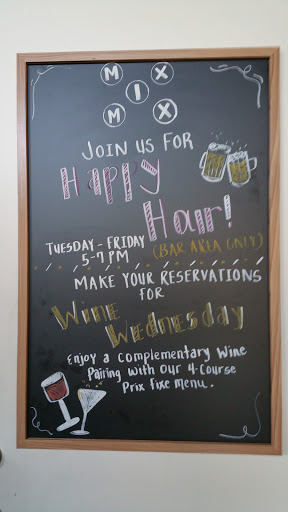 M X
I
M X
JOIN US FOR
Happy
Hour!
TUESDAY - FRIDAY
5-7 PM
(BAR AREA ONLY)
MAKE YOUR RESERVATIONS
FOR
Wine
Wednesday
Enjoy a Complementary Wine
Pairing With Our 4-Course
Prix Fixe Menu.